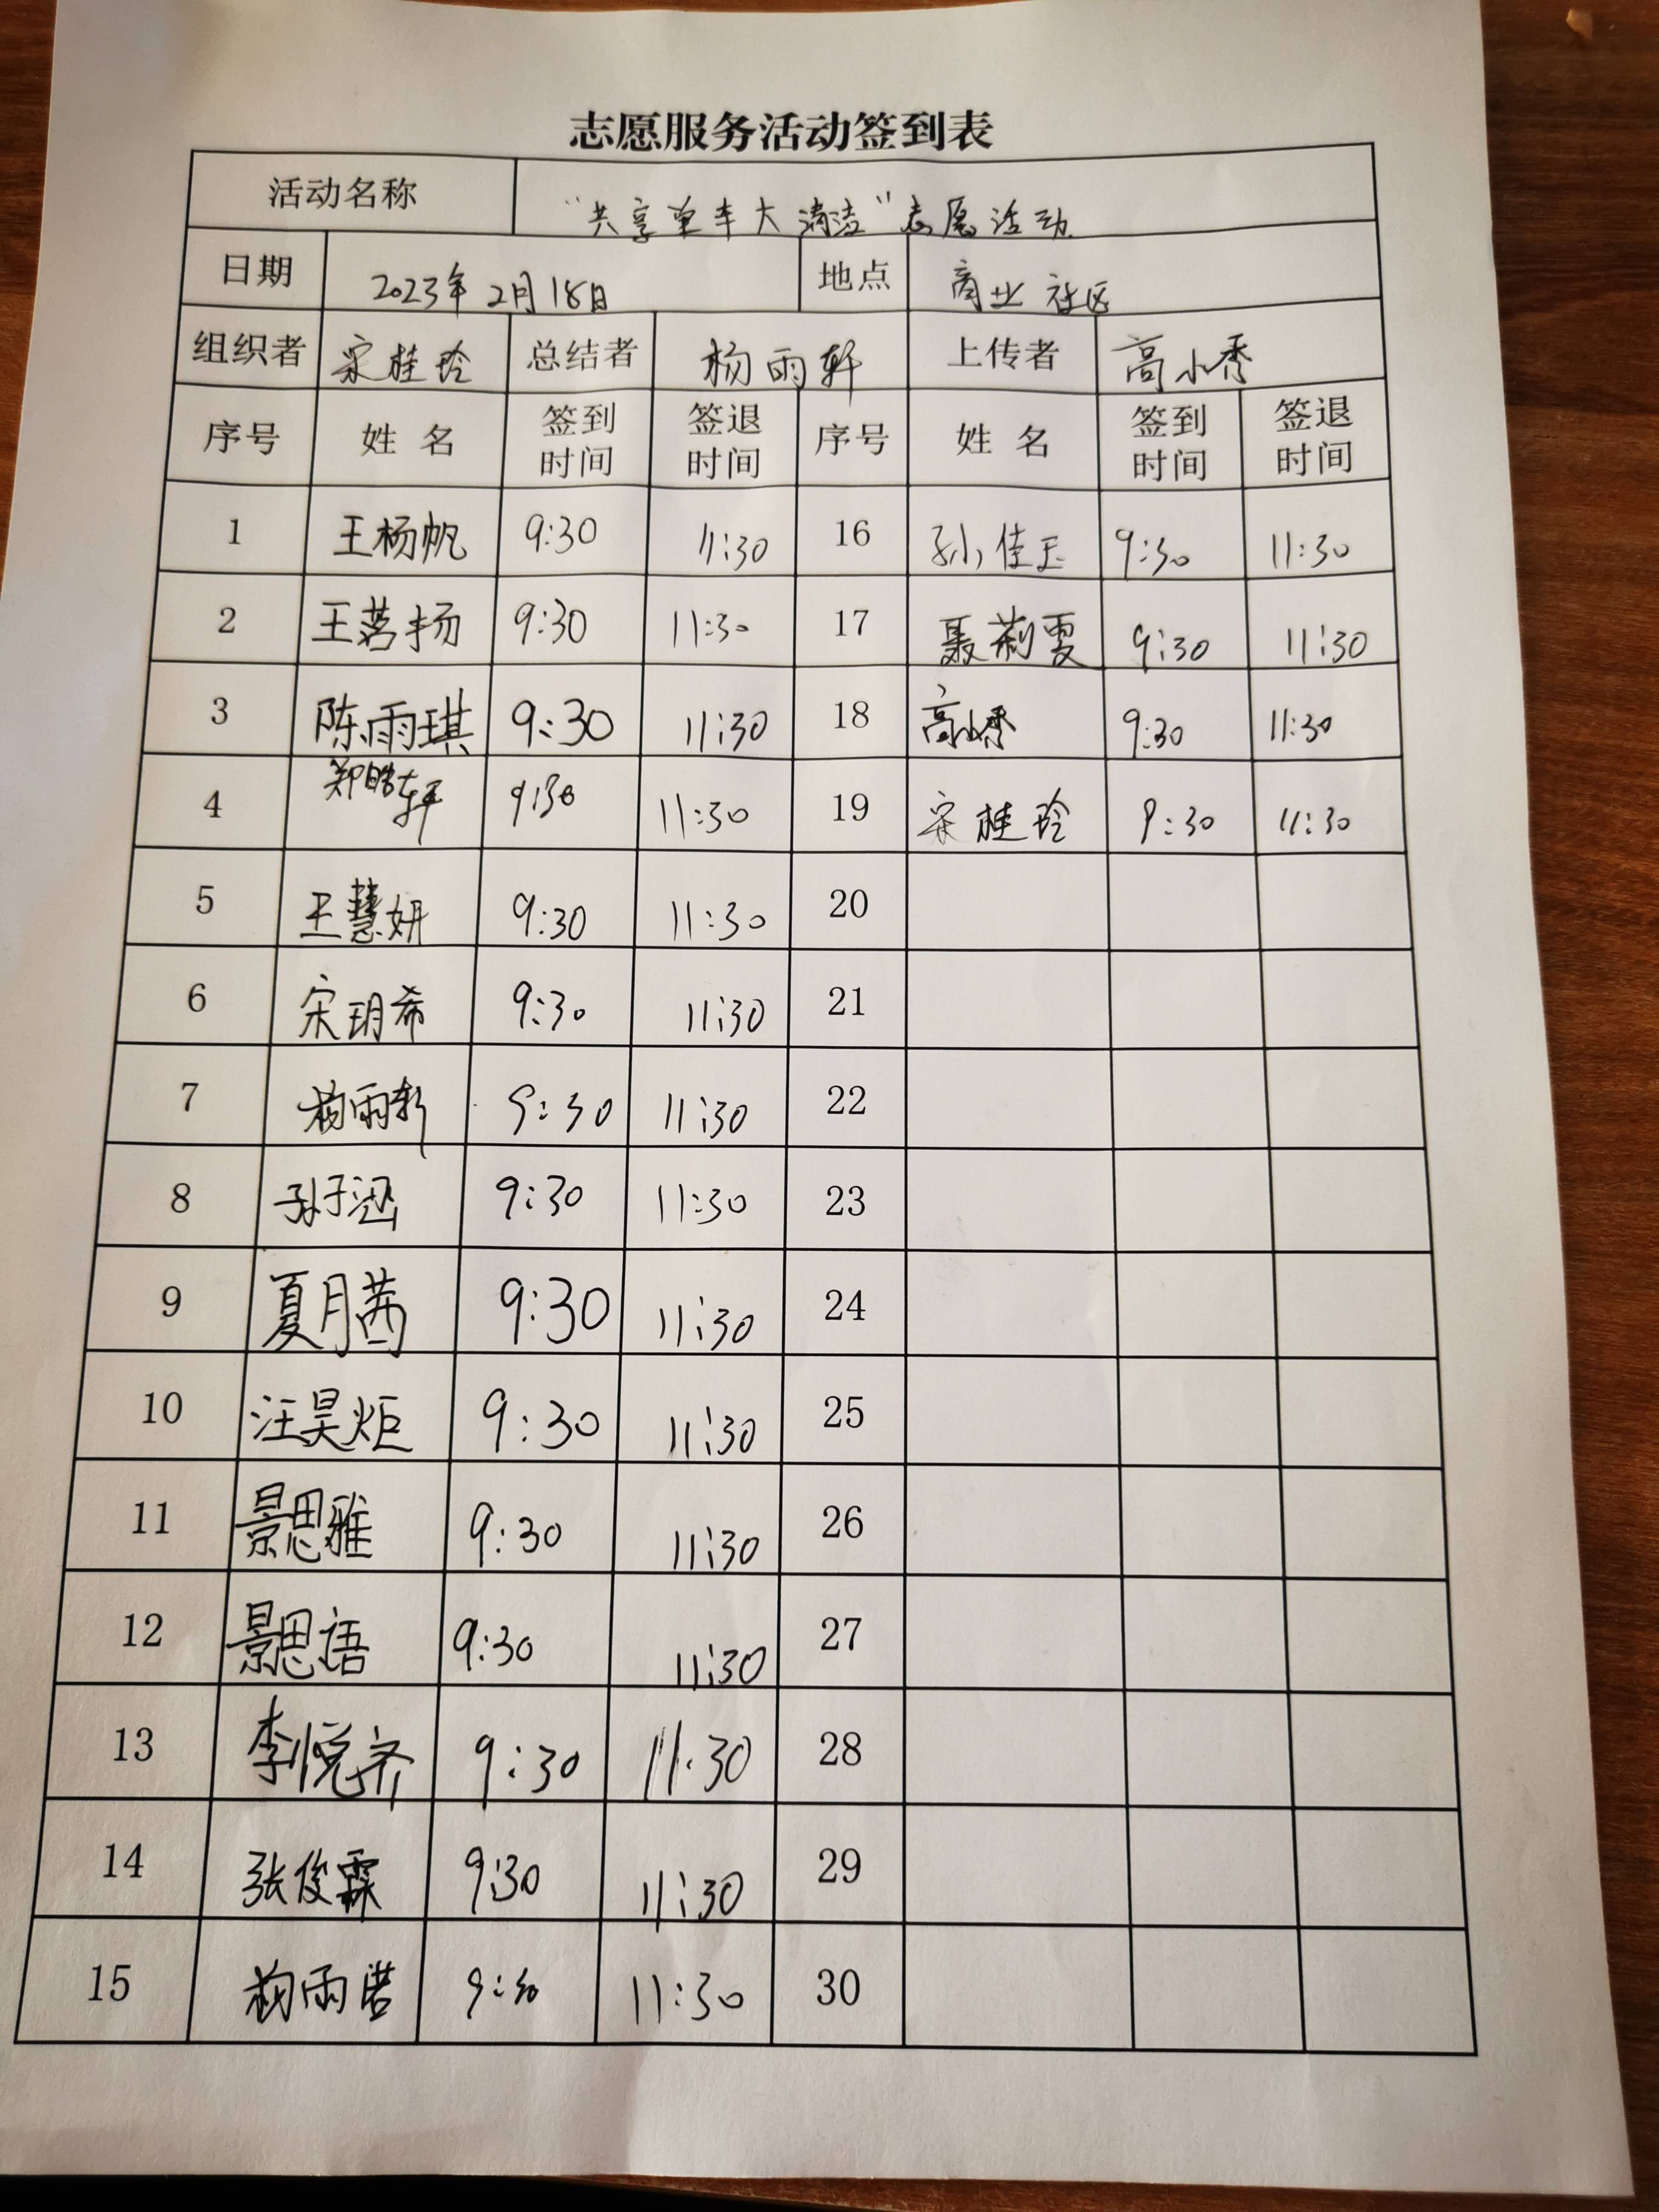 志愿服务活动签到表
活动名称 “共享单车大清洁”志愿活动
日期 2023年2月18日 地点 商业社区
组织者 宋桂玲 总结者 杨雨轩 上传者 高小秀
序号 姓名 签到时间 签退时间 序号 姓名 签到时间 签退时间
1 王杨帆 9:30 11:30 16 孙佳玉 9:30 11:30
2 王茗扬 9:30 11:30 17 聂莉雯 9:30 11:30
3 陈雨琪 9:30 11:30 18 高小秀 9:30 11:30
4 郑皓轩 9:30 11:30 19 宋桂玲 9:30 11:30
5 王慧妍 9:30 11:30 20
6 宋玥希 9:30 11:30 21
7 杨雨轩 9:30 11:30 22
8 孙子涵 9:30 11:30 23
9 夏月茜 9:30 11:30 24
10 汪昊炬 9:30 11:30 25
11 景思雅 9:30 11:30 26
12 景思语 9:30 11:30 27
13 李悦齐 9:30 11:30 28
14 张俊霖 9:30 11:30 29
15 杨雨诺 9:30 11:30 30